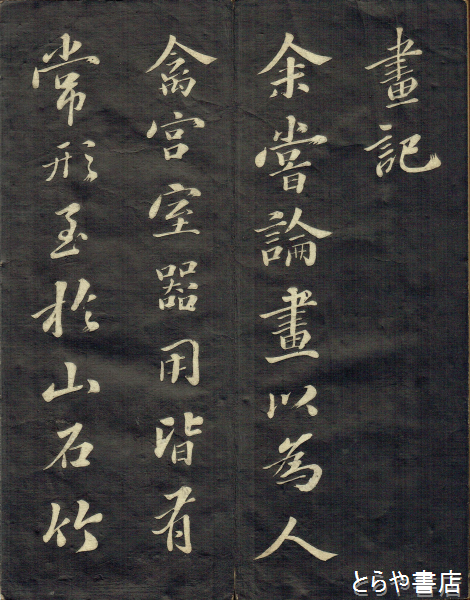 畫記
余嘗論畫以為人
禽宮室器用皆有
常形至於山石竹
とらや書店